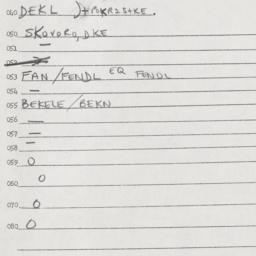 040 DEKL
050 SKOVORO, DKE
051 —
053 FAN/FENDL EQ FENDL
054 —
055 BEKELE/BEKN
056 —
057 —
058 —
059 O
060 O
070 O
080 O